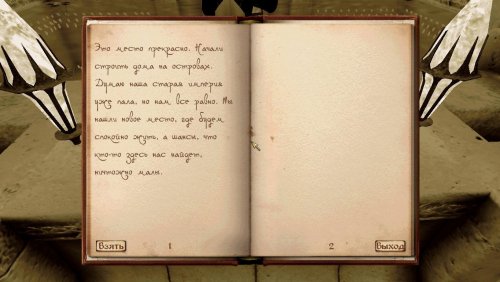 Это место прекрасно. Начали
строить дома на островах.
Думаю наша старая империя
уже пала, но нам все равно. Мы
нашли новое место, где будем
спокойно жить, а шансы, что
кто-то здесь нас найдет,
ничтожно малы.
Взять 1 2 Выход